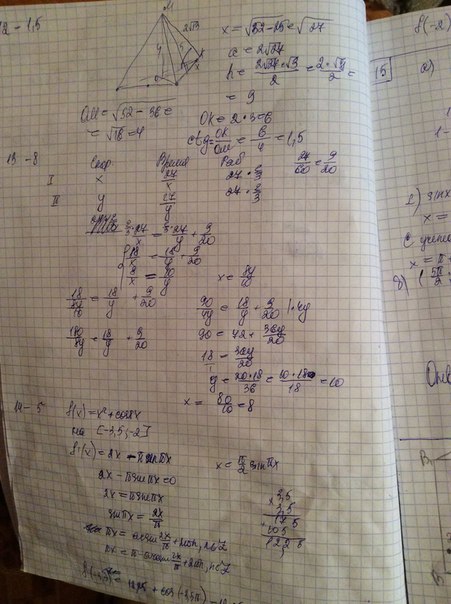 12 - 1,5
M
2√13
x = √52-25 = √27
a = 2√27
h = 2√27·√3/2 = 2·√81/2 =
= 9
OM = √52-36 =
= √16 = 4
OK = 2·3 = 6
ctg = OK/OM = 6/4 = 1,5
13 - 8
Скор Время Раб
I x 27/x 27·2/3
II y 27/y 27·2/3
27/60 = 9/20
18/x = 18/y + 9/20
8/x = 10/y
x = 8y/10
18/(8y/10) = 18/y + 9/20
180/8y = 18/y + 9/20
90/4y = 18/y + 9/20 |·4y
90 = 72 + 36y/20
18/1 = 36y/20
y = 20·18/36 = 10·18/18 = 10
x = 80/10 = 8
14 - 5
f(x) = x² + cosπx
на [-3,5; -2]
f'(x) = 2x - πsinπx
2x - πsinπx = 0
2x = πsinπx
sinπx = 2x/π
x = π/2 sinπx
πx = arcsin 2x/π + 2πn, n∈Z
πx = π - arcsin 2x/π + 2πn, n∈Z
× 3,5
3,5
+ 175
105
1225
f(-3,5) = 12,25 + cos(-3,5π)
f(-2)
15 a)
1-
sinx
x =
с учётом
x = π +
б) (5π/2
Отв
B